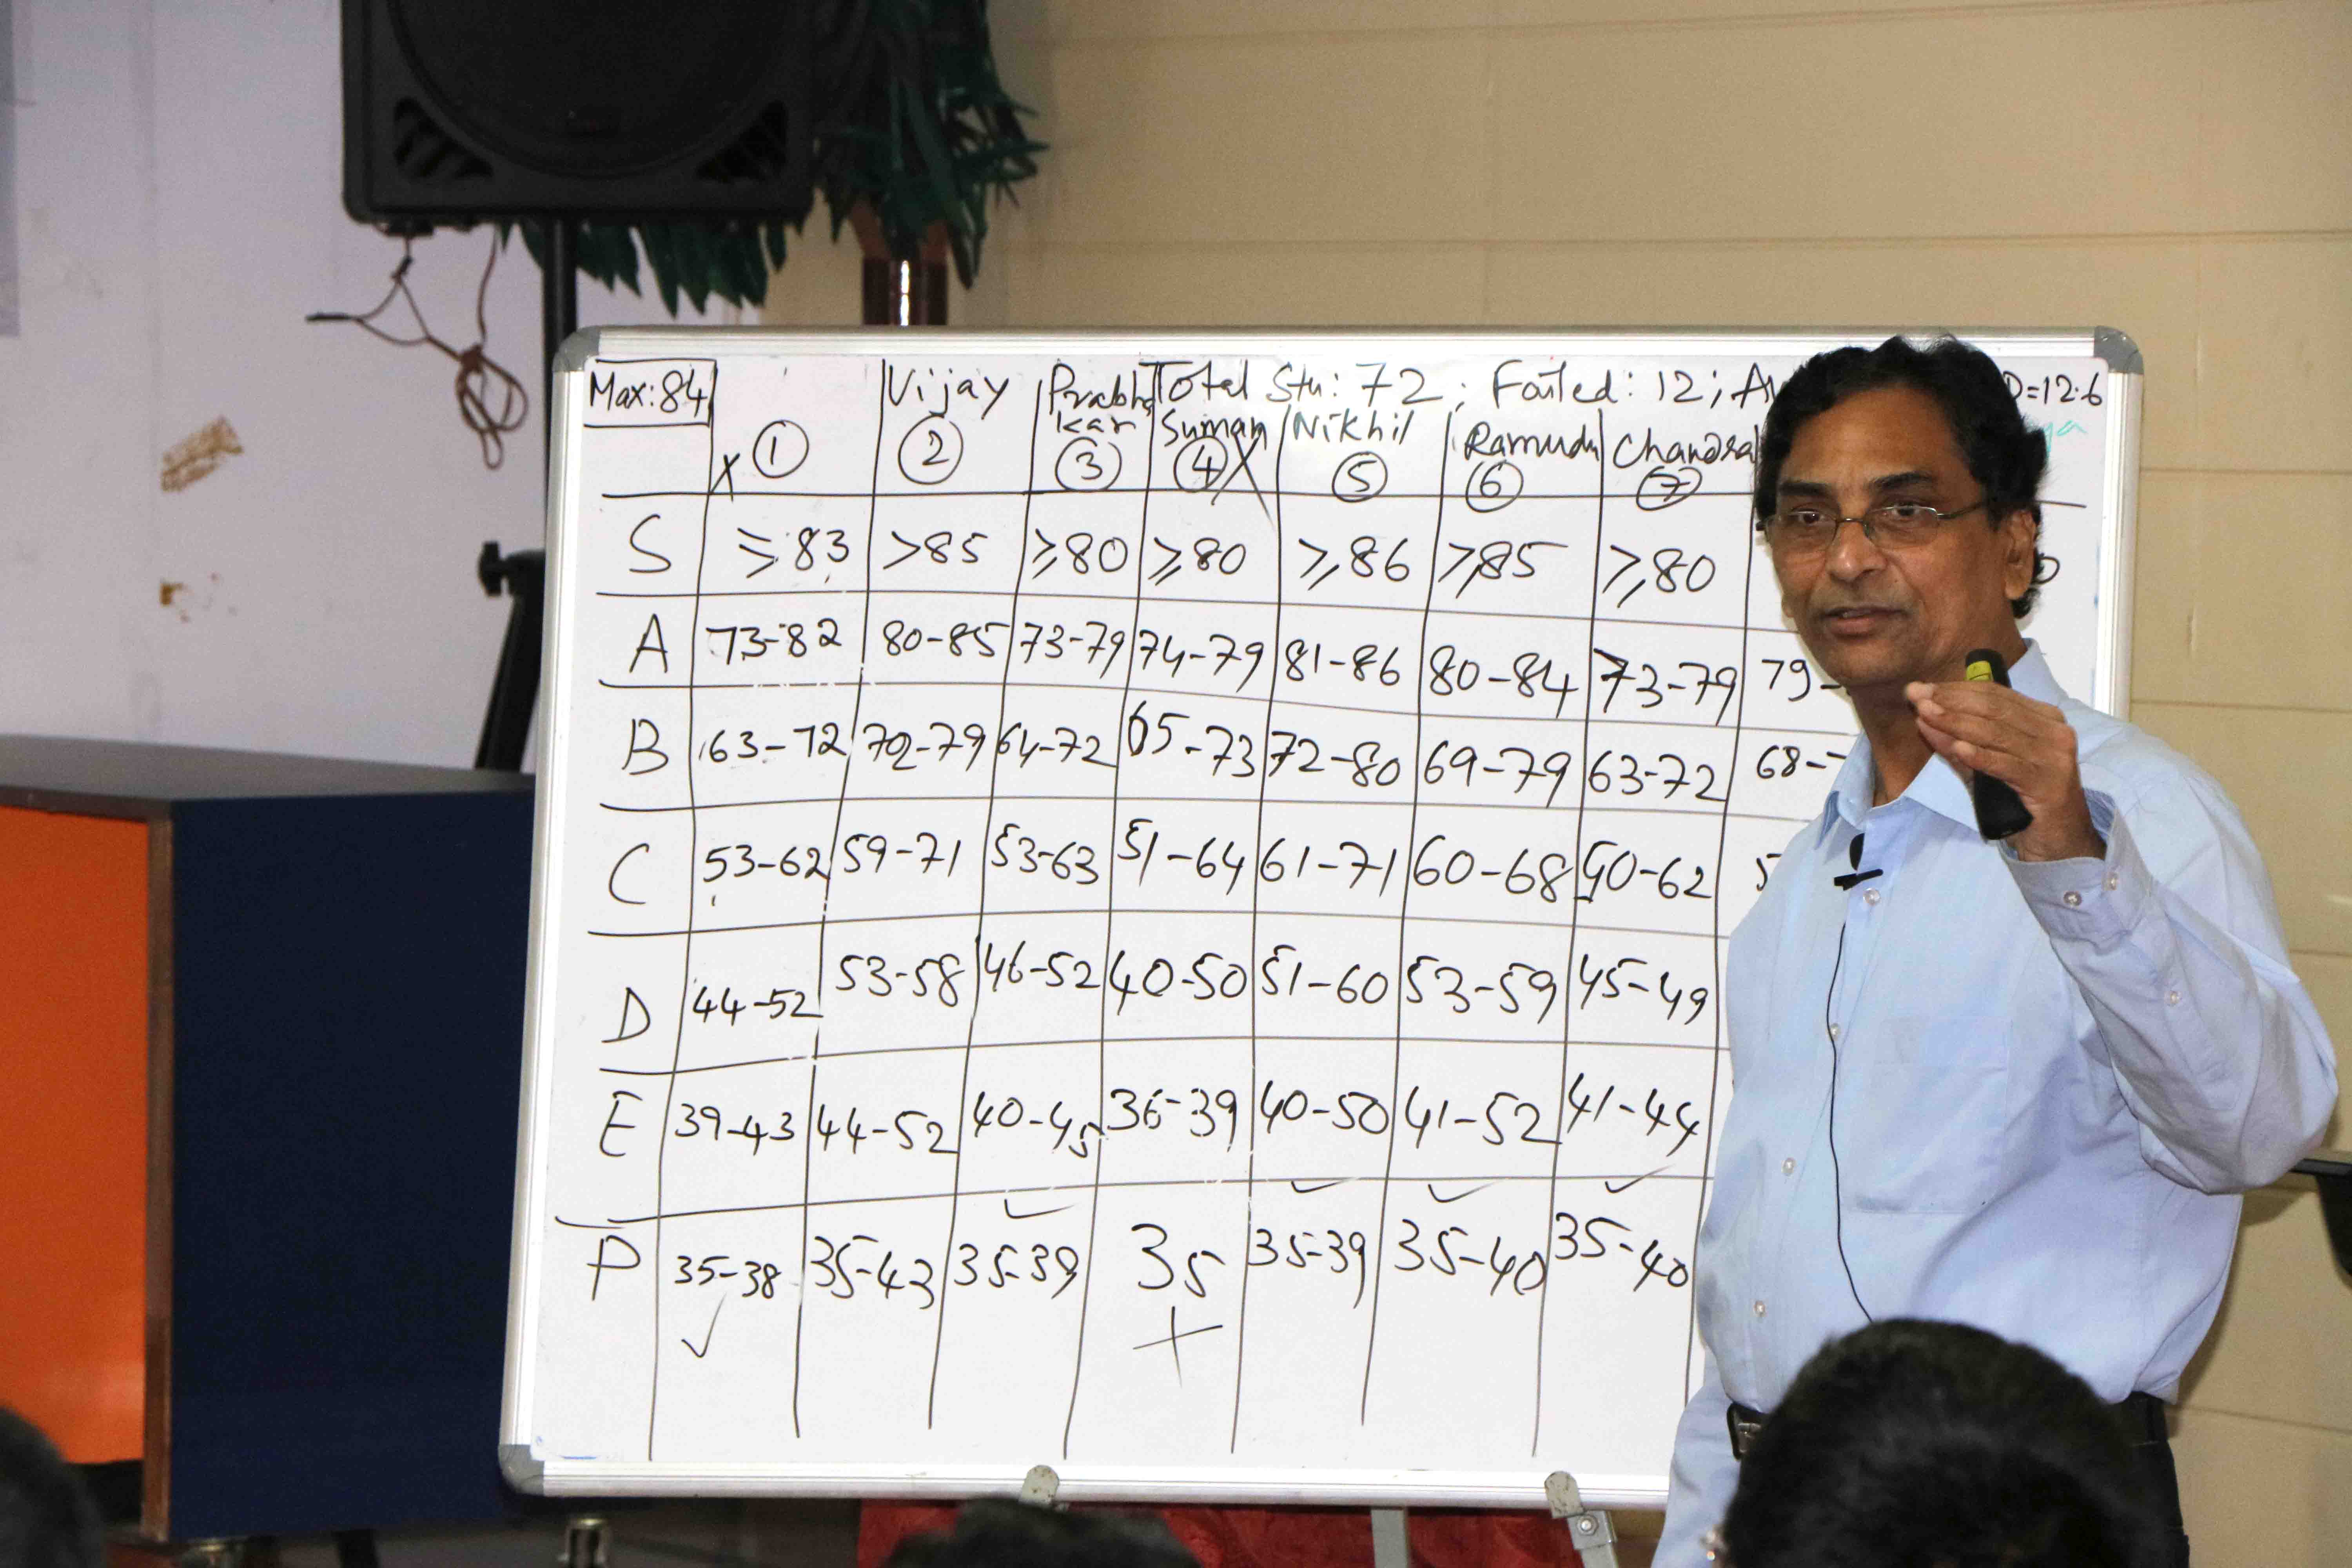 Max: 84 Total Stu: 72; Failed: 12; =12.6
Vijay Prabha kar Suman Nikhil Ramudu Chandra
x ① ② ③ ④ X ⑤ ⑥ ⑦
S ≥ 83 >85 ≥80 ≥80 ≥86 ≥85 ≥80
A 73-82 80-85 73-79 74-79 81-86 80-84 73-79 79-
B 63-72 72-79 64-72 65-73 72-80 69-79 63-72 68-
C 53-62 59-71 53-63 51-64 61-71 60-68 50-62 5
D 44-52 53-58 46-52 40-50 51-60 53-59 45-49
E 39-43 44-52 40-45 36-39 40-50 41-52 41-44
P 35-38 35-43 35-39 35 35-39 35-40 35-40